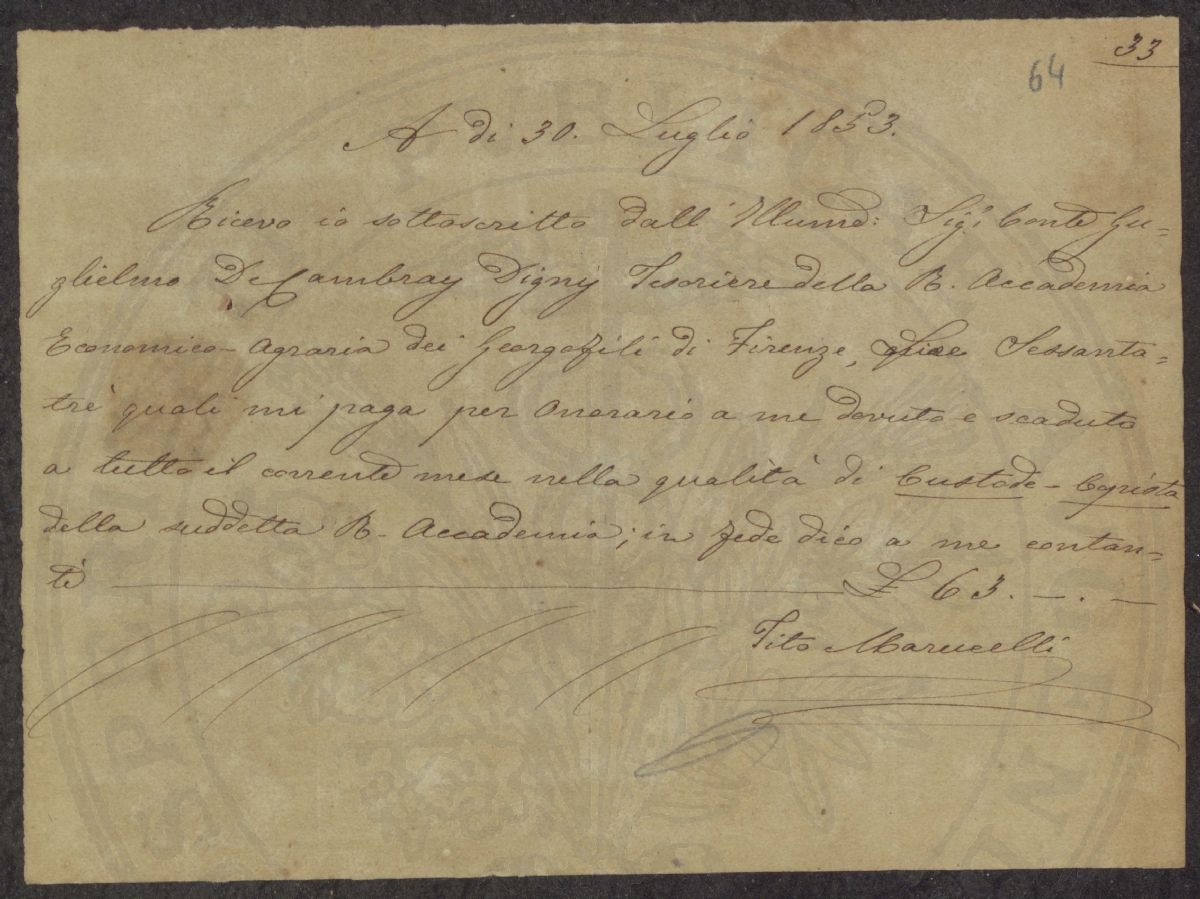 33
64
A dì 30. Luglio 1853.
Ricevo io sottoscritto dall' Illumo: Sigr Conte Gu=
glielmo De Cambray Digny Tesoriere della R. Accademia
Economico-Agraria dei Georgofili di Firenze, Sessanta=
trè quali mi paga per Onorario a me dovuto e scaduto
a tutto il corrente mese nella qualità di Custode-Copista
della suddetta R. Accademia; in fede dico a me contan=
ti ———— £ 63. —.—
Tito Marucelli